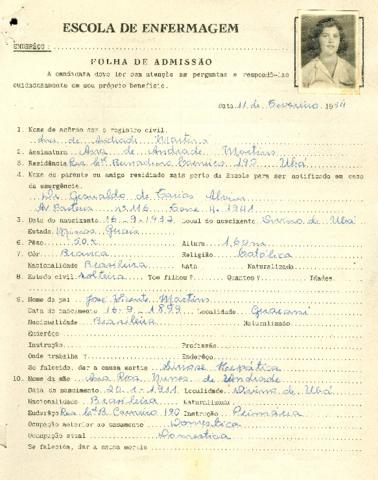 ESCOLA DE ENFERMAGEM
ENDERÊÇO:
FOLHA DE ADMISSÃO
A candidata deve ler com atenção as perguntas e respondê-las
cuidadosamente em seu próprio benefício.
Data 11 de Fevereiro, 19
1. Nome de acôrdo com o registro civil.
Ana de Andrade Martins
2. Assinatura Ana de Andrade Martins
3. Residência Rua Cel. Carneiro, 190 Ubá
4. Nome do parente ou amigo residindo mais perto da Escola para ser notificado em caso
de emergência.
Geraldo de
Av. nº 116 Fone 4.1941
3. Data do nascimento 16-9-1932 Local do nascimento Divino de Ubá
Estado Minas Gerais
6. Pêso 50 k Altura 1,60 m
7. Côr Branca Religião Católica
Nacionalidade Brasileira Nata Naturalizada
8. Estado civil solteira Tem filhos? Quantos? Idades
9. Nome do pai José Vicente Martins
Data do nascimento 16-9-1899 Localidade Guarani
Nacionalidade Brasileira Naturalizado
Enderêço
Instrução Profissão
Onde trabalha? Enderêço
Se falecido, dar a causa mortis Cirrose Hepática
10. Nome da mãe Ana Rosa Nunes de Andrade
Data do nascimento 20-1-1911 Localidade Divino de Ubá
Nacionalidade Brasileira Naturalizada
Enderêço Rua Cel. B. Carneiro 190 Instrução Primária
Ocupação anterior ao casamento Doméstica
Ocupação atual Doméstica
Se falecida, dar a causa mortis